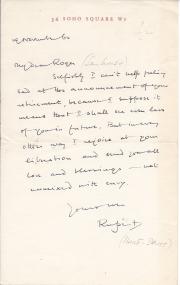 36 SOHO SQUARE W1
My dear Roger (Senhouse)
Selfishly I can't help feeling
sad at the announcement of your
retirement, because I suppose it
means that I shall see even less
of you in future. But in every
other way I rejoice at your
liberation and send you all
love and blessings – not
unmixed with envy.
Yours ever
Rupert
(Hart-Davis)